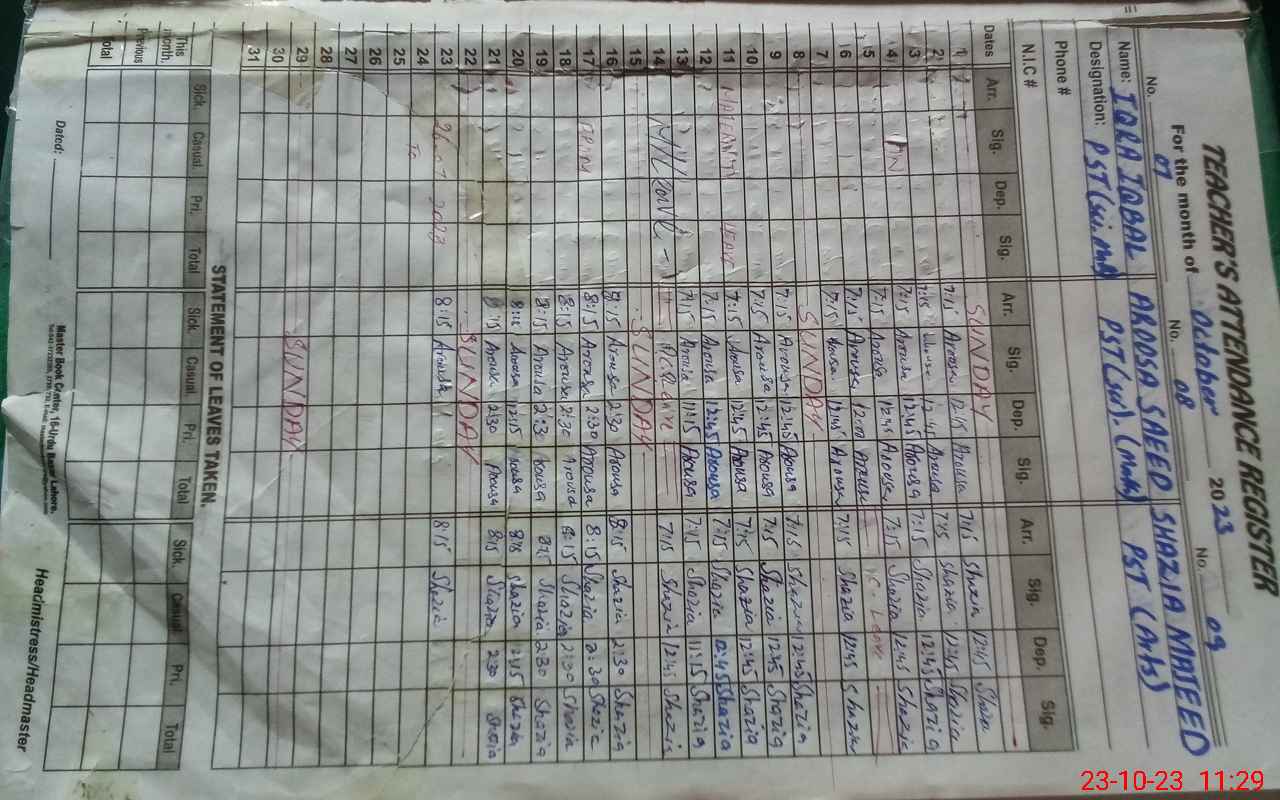 TEACHER'S ATTENDANCE REGISTER
For the month of October 2023
No. 07 No. 08 No. 09
Name: IQRA IQBAL AROOSA SAEED SHAZIA MAJEED
Designation: PST (sci. Math) PST (sci). (Math) PST (Arts)
Phone #
N.I.C #
Dates Arr. Sig. Dep. Sig. Arr. Sig. Dep. Sig. Arr. Sig. Dep. Sig.
1 SUNDAY
2 7:15 Aroosa 12:45 Aroosa 7:15 Shazia 12:45 Shazia
3 7:15 Aroosa 12:45 Aroosa 7:15 Shazia 12:45 Shazia
4 7:15 Aroosa 12:45 Aroosa 7:15 Shazia 12:45 Shazia
5 7:15 Aroosa Aroosa Leave
6 7:15 Aroosa 12:45 Aroosa 7:15 Shazia 12:45 Shazia
7
8 SUNDAY 7:15 Aroosa 12:45 Aroosa 7:15 Shazia 12:45 Shazia
9 7:15 Aroosa 12:45 Aroosa 7:15 Shazia 12:45 Shazia
10 7:15 Aroosa 12:45 Aroosa 7:15 Shazia 12:45 Shazia
11 MATERNITY LEAVE 7:15 Aroosa 12:45 Aroosa 7:15 Shazia 12:45 Shazia
12 7:15 Aroosa 12:45 Aroosa 7:15 Shazia 12:45 Shazia
13 7:15 Aroosa 11:15 Aroosa 7:15 Shazia 11:15 Shazia
14 7:15 Shazia 12:45 Shazia
15 SUNDAY
16 8:15 Aroosa 2:30 Aroosa 8:15 Shazia 2:30 Shazia
17 FROM 8:15 Aroosa 2:30 Aroosa 8:15 Shazia 2:30 Shazia
18 8:15 Aroosa 2:30 Aroosa 8:15 Shazia 2:30 Shazia
19 8:15 Aroosa 2:30 Aroosa 8:15 Shazia 2:30 Shazia
20 8:15 Aroosa 12:15 Aroosa 8:15 Shazia 12:15 Shazia
21 8:15 Aroosa 2:30 Aroosa 8:15 Shazia 2:30 Shazia
22 SUNDAY
23 2023 8:15 Aroosa 8:15 Shazia
24 To
25
26
27
28
29 SUNDAY
30
31
STATEMENT OF LEAVES TAKEN.
Sick. Casual. Pri. Total Sick. Casual. Pri. Total Sick. Casual Pri. Total
This month.
Previous
Total
Dated:
Master Book Center, 16-Urdu Bazar Lahore.
Headmistress/Headmaster
23-10-23 11:29